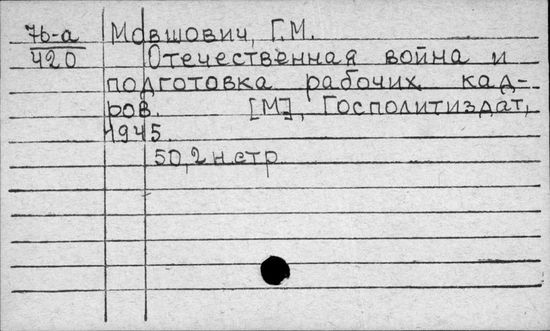 76-а
420
Мовшович, Г.М.
Отечественная война и
подготовка рабочих кад-
ров. [М], Госполитиздат,
1945.
50,2 н.стр.